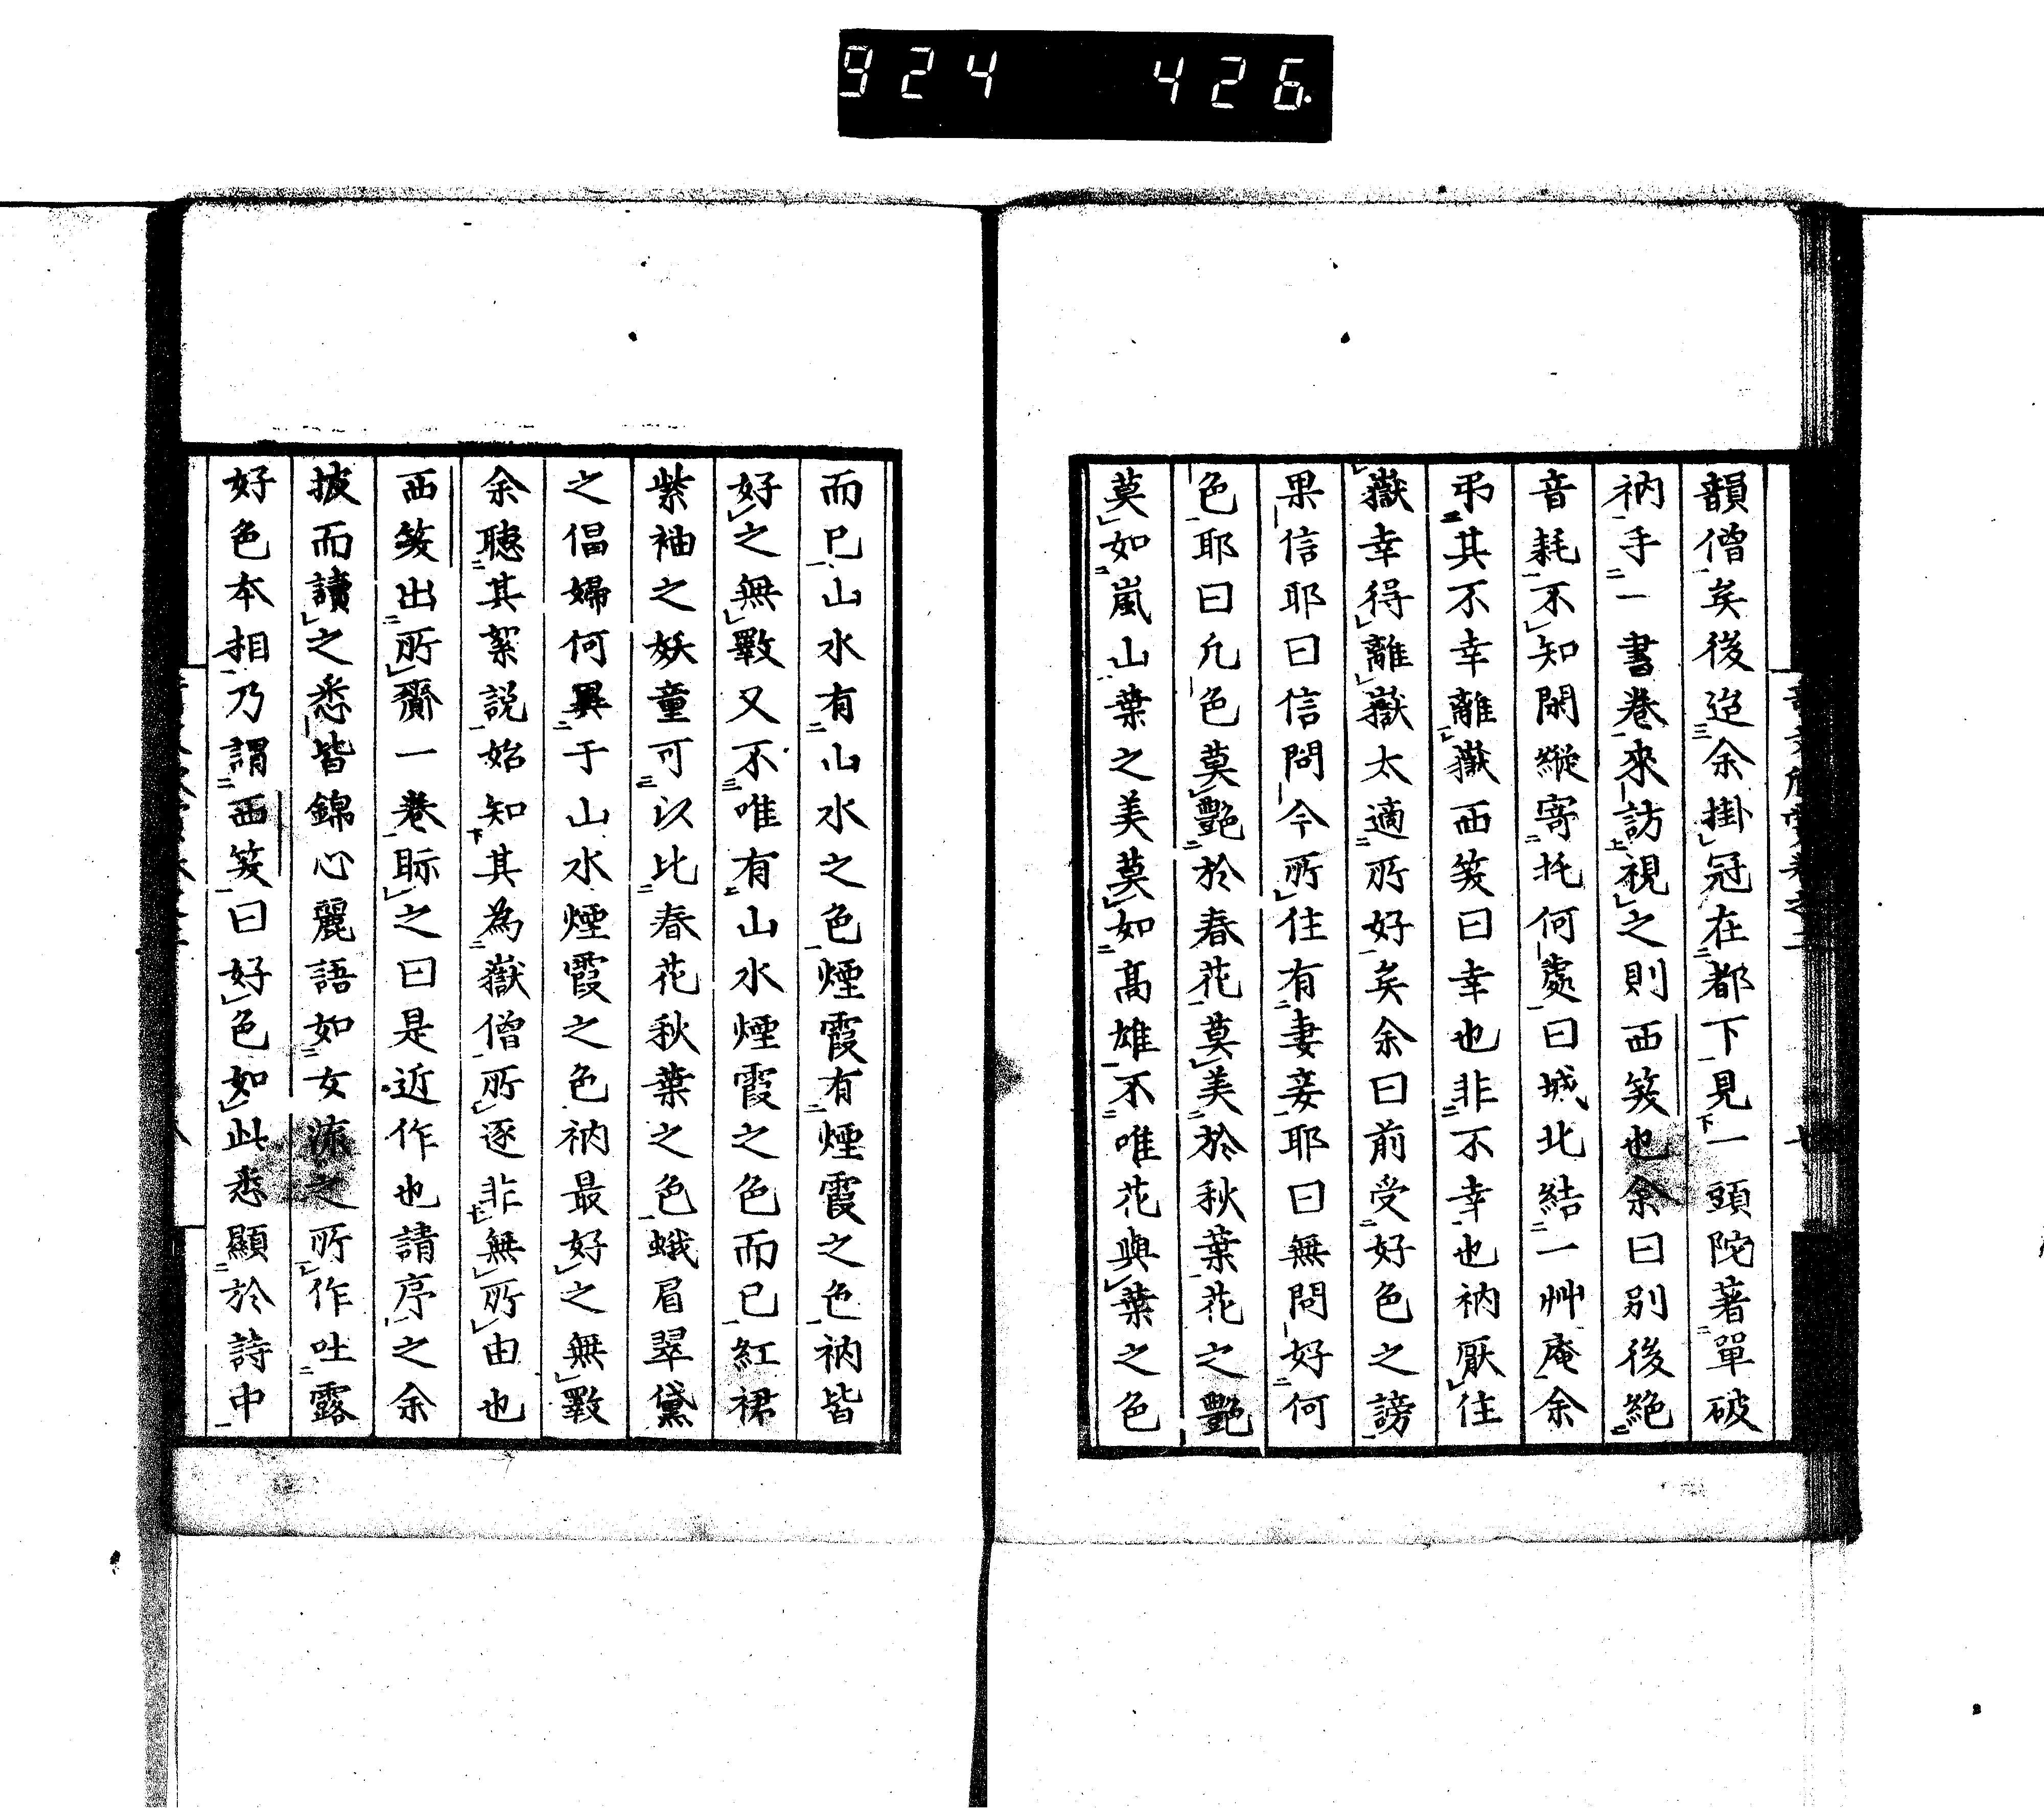 924 426
韻僧矣後迨余掛冠在都下見一頭陀著單破
衲手一書卷來訪視之則西笑也余曰別後絶
音耗不知閑縦寄托何處曰城北結一艸庵余
弔其不幸離嶽西笑曰幸也非不幸也衲厭住
嶽幸得離嶽太適所好矣余曰前受好色之謗
果信耶曰信問今所住有妻妾耶曰無問好何
色耶曰凡色莫艷於春花莫美於秋葉花之艷
莫如嵐山葉之美莫如髙雄不唯花與葉之色
而已山水有山水之色煙霞有煙霞之色衲皆
好之無斁又不唯有山水煙霞之色而已紅裙
紫袖之妖童可以比春花秋葉之色蛾眉翠黛
之倡婦何異于山水煙霞之色衲最好之無斁
余聴其絮説始知其為嶽僧所逐非無所由也
西笑出所齎一巻眎之曰是近作也請序之余
披而讀之悉皆錦心麗語如女流之所作吐露
好色本相乃謂西笑曰好色如此悉顯於詩中